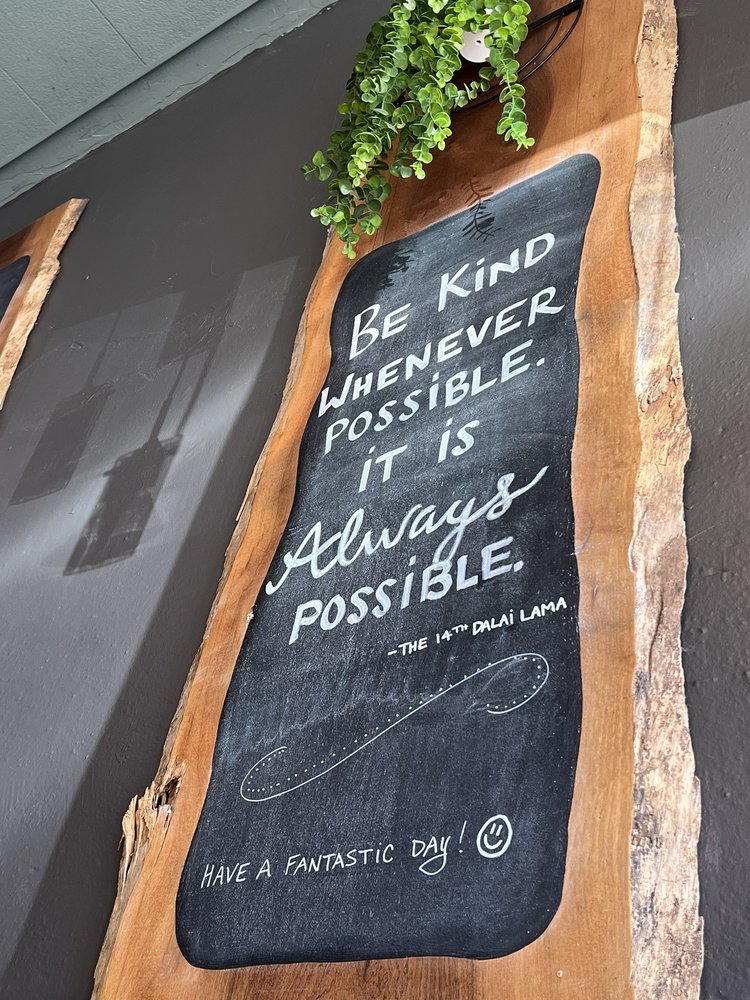 BE KiND
WHENEVER
POSSiBLE.
iT iS
Always
POSSiBLE.
-THE 14TH DALAi LAMA
HAVE A FANTASTiC DAy! ☺